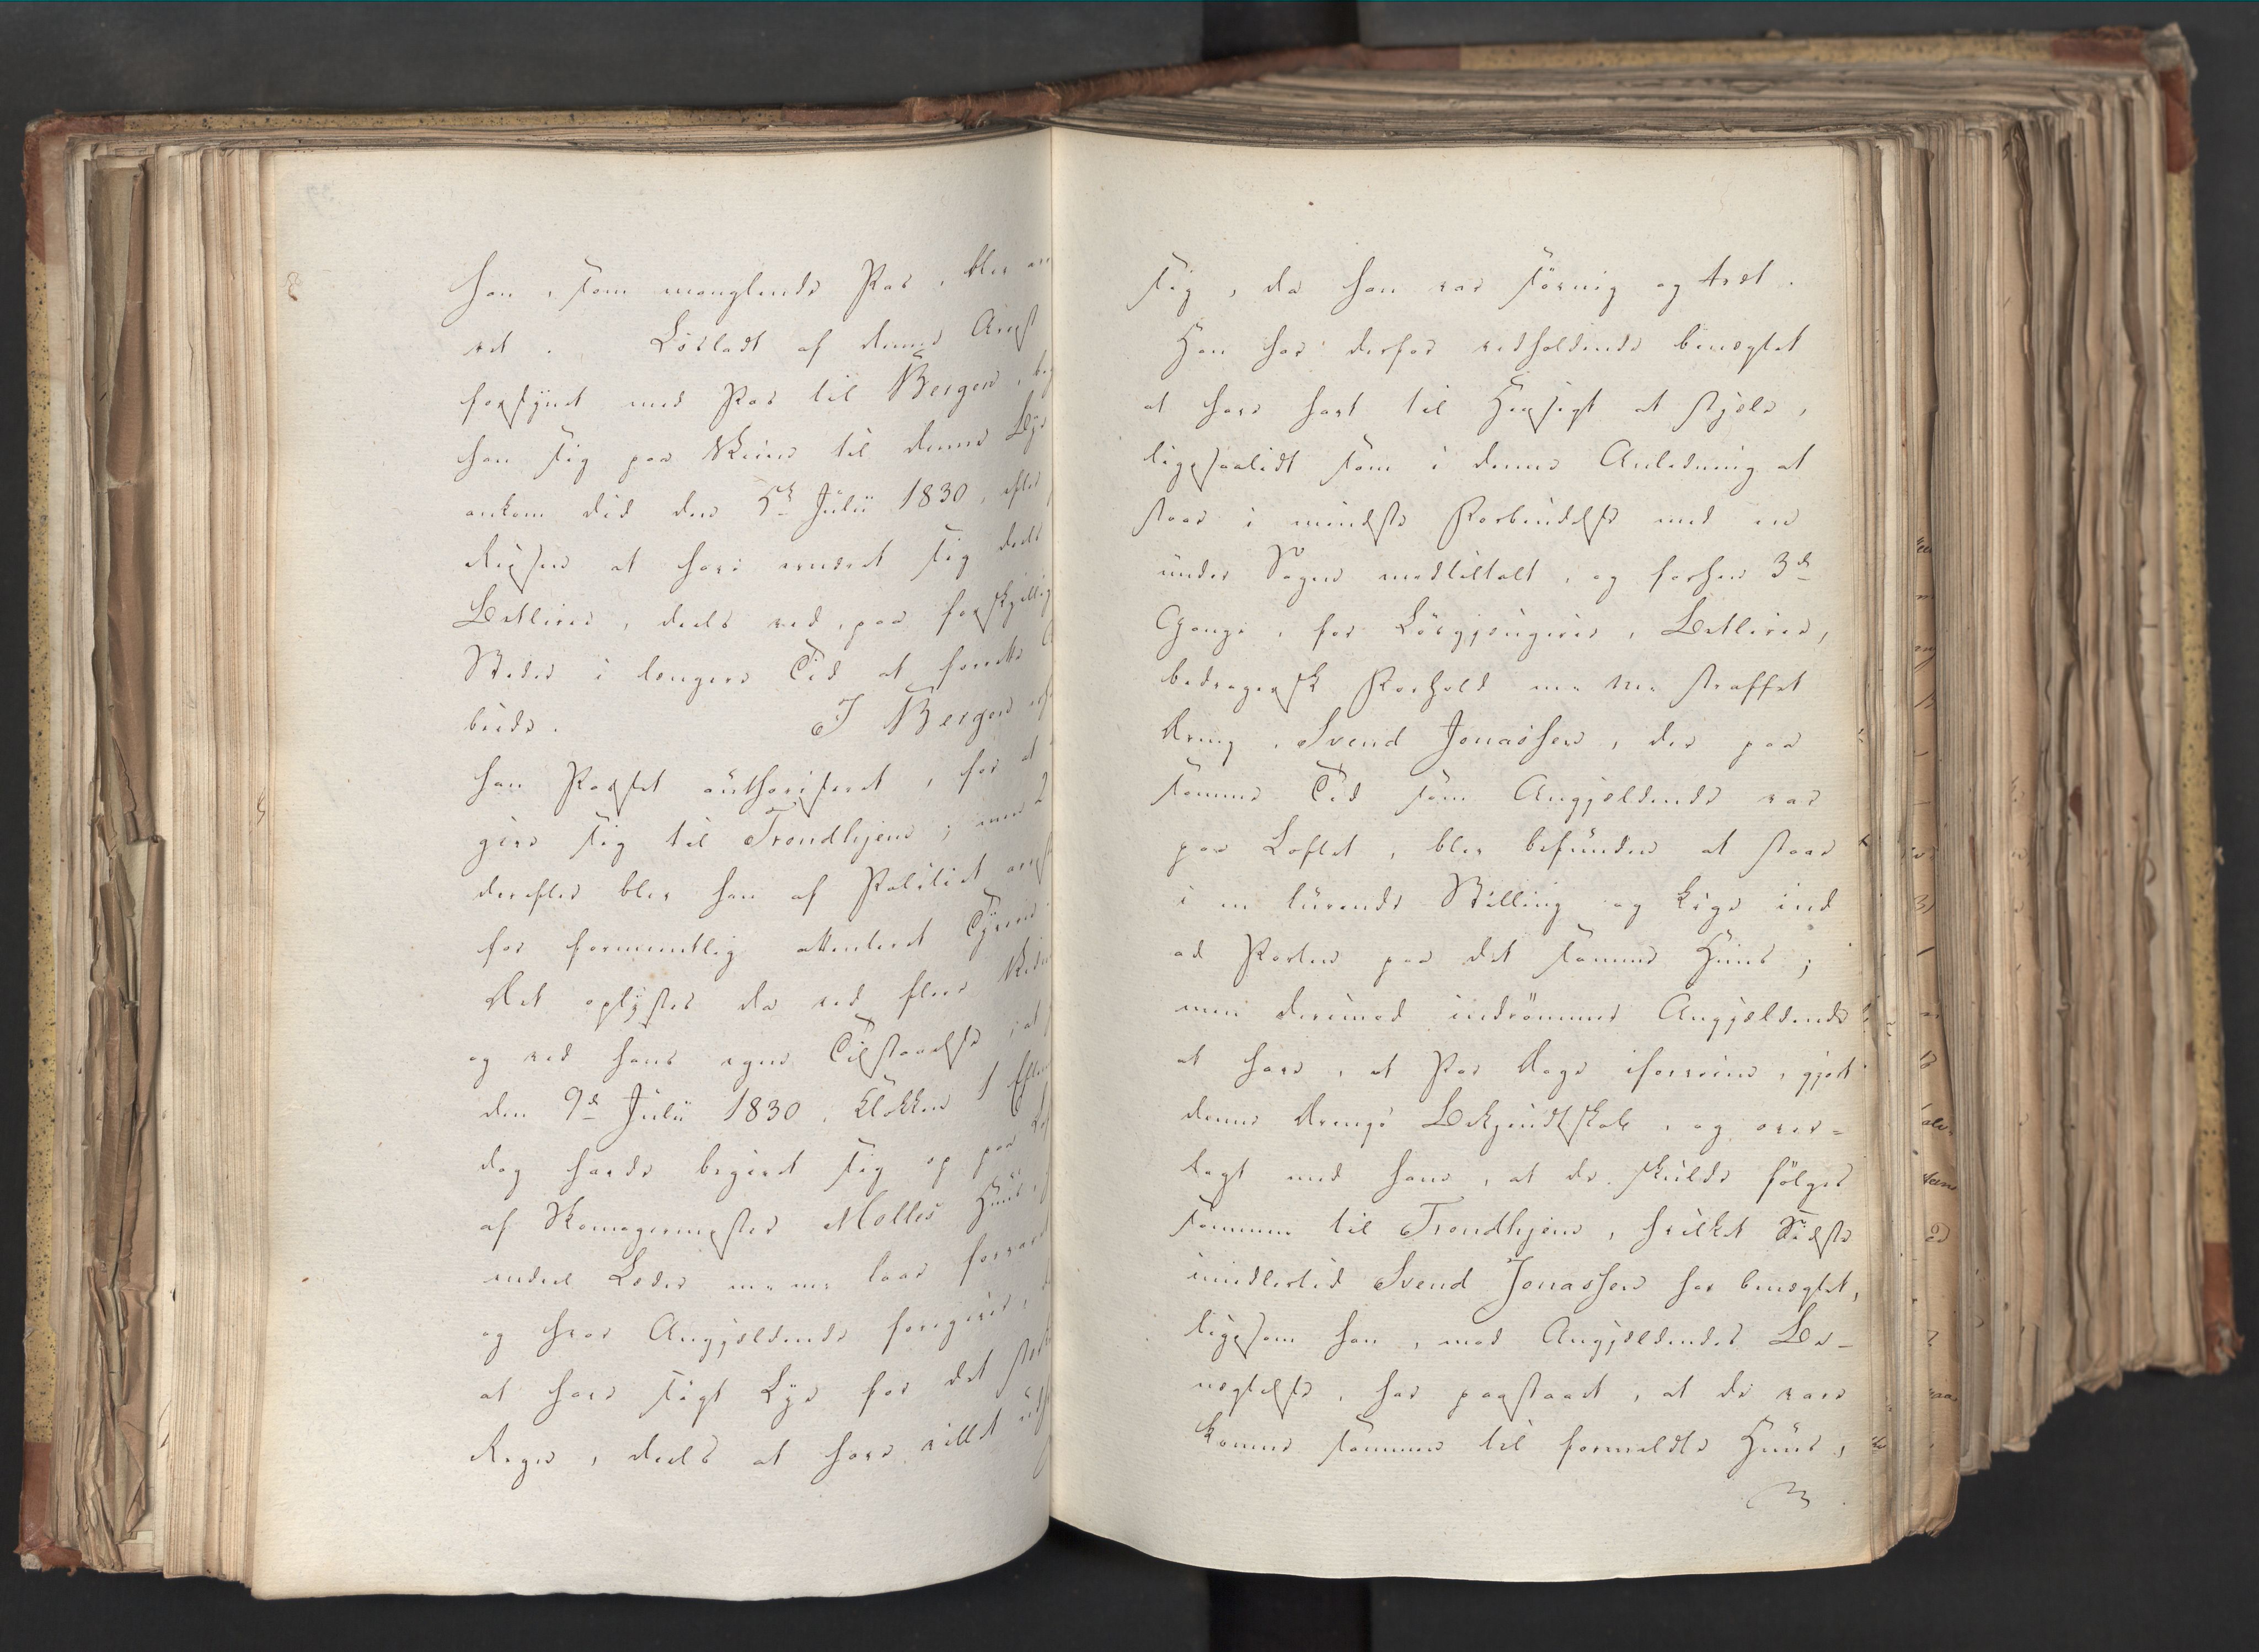 han, som manglende Pas, blev an
ret. Løsladt af denne Arest
forsynet med Pas til Bergen, beg
han sig paa Veien til denne Bye
ankom did den 5te Julii 1830, efter
Reisen at have ernæret sig deels
Betlerie, deels ved, paa forskjellig
Steder i længere Tid at forrette A
beide. I Bergen
han Passet authoriseret, for at
give sig til Trondhjem; men 2
derefter blev han af Politiet arest
for formeentlig attenteret Tyverie.
Det oplystes da ved flere Vidn
og ved hans egen Tilstaaelse, at
den 9de Julii 1830, Klokken 1 Efter
dag havde begivet sig op paa Lof
af Skomagermester Møllers Huus,
endeel Læder m: m: laae forvar
og hvor Angjeldende foregiver,
at have søgt Lye for det stær
Regn, deels at have villet
sig, da han var søvnig og træt.
Han har derfor vedholdende benægtet
at have havt til Hensigt at stjæle,
ligesaalidt som i denne Anledning at
staae i mindste Forbindelse med en
under Sagen medtiltalt, og forhen 3de
Gange, for Løsgjængerie, Betlerie,
bedragersk Forhold m: m: straffet
Dreng, Svend Jonassen, der paa
samme Tid som Angjeldende var
paa Loftet, blev befunden at staae
i en lurende Stilling og kige ind
ad Porten paa det samme Huus;
men derimod indrømmer Angjeldende
at have, et Par Dage iforveien, gjort
denne Drengs Bekjendtskab, og over-
lagt med ham, at de skulde følges
sammen til Trondhjem, hvilket Sidste
imidlertid Svend Jonassen har benægtet,
ligesom han, mod Angjeldendes Be-
nægtelse, har paastaaet, at de vare
komne sammen til formeldte Huus,